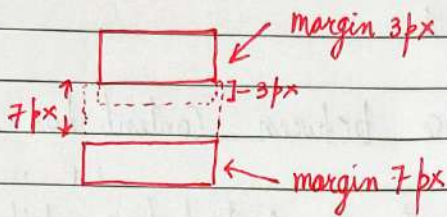 margin 3px
]-3px
7px
margin 7px